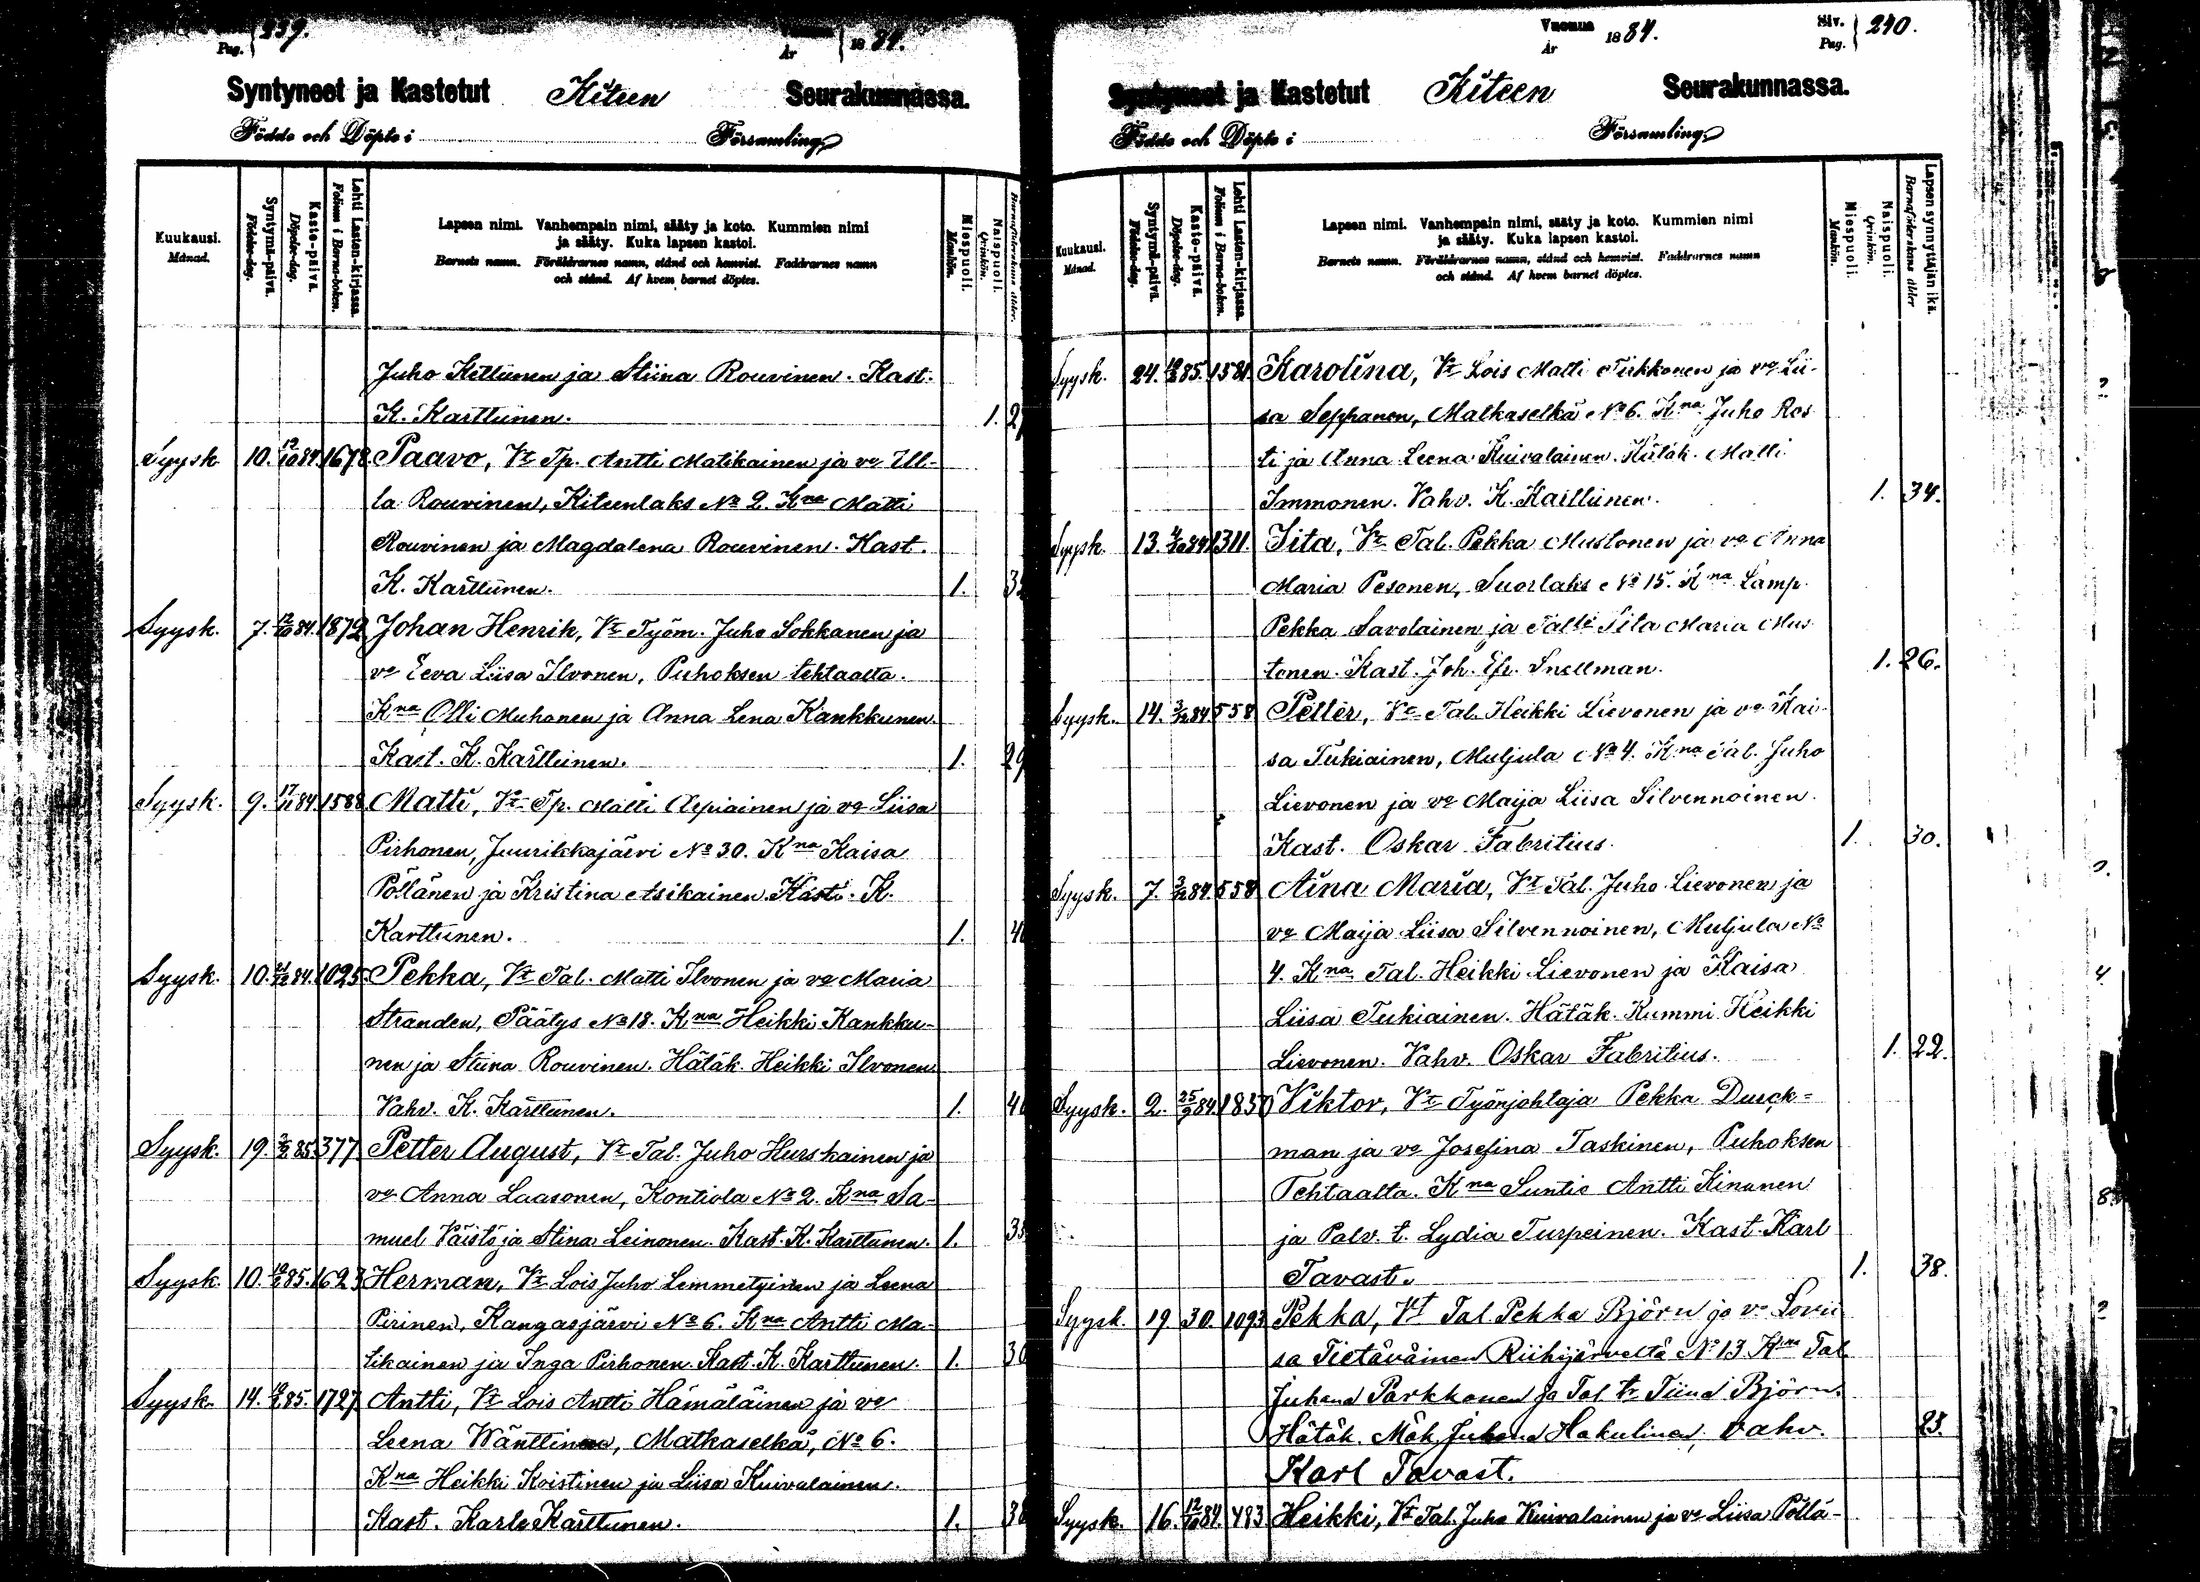 Pag. 239.
År 1884.
Syntyneet ja Kastetut Kiteen Seurakunnassa.
Födde och Döpte i Församling
Kuukausi.
Månad.
Syntymä-päivä.
Födelse-dag.
Kaste-päivä.
Döpelse-dag.
Lehti Lasten-kirjassa.
Folium i Barna-boken.
Lapsen nimi. Vanhempain nimi, sääty ja koto. Kummien nimi
ja sääty. Kuka lapsen kastoi.
Barnets namn. Föräldrarnes namn, stånd och hemvist. Faddrarnes namn
och stånd. Af hvem barnet döptes.
Miespuoli.
Mankön.
Naispuoli.
Qvinkön.
Barnaföderskans ålder.
Juho Kettunen ja Stiina Rouvinen. Kast.
K. Karttunen. 1.
Syysk. 10. 12/10 84. 1678 Paavo, Vt Tp. Antti Matikainen ja vo Ul-
la Rouvinen, Kiteenlaks No 2. Kna Matti
Rouvinen ja Magdalena Rouvinen. Kast.
K. Karttunen. 1.
Syysk. 7. 12/10 84. 1872 Johan Henrik, Vt Työm. Juho Sokkanen ja
vo Eeva Liisa Ilvonen, Puhoksen tehtaalta.
Kna Olli Muhonen ja Anna Lena Kankkunen.
Kast. K. Karttunen. 1. 29
Syysk. 9. 84. 1588 Matti, Vt Tp. Matti Alpiainen ja vo Liisa
Pirhonen, Juurikkajärvi No 30. Kna Kaisa
Pöllänen ja Kristina Asikainen. Kast. K.
Karttunen. 1.
Syysk. 10. 84. 1025 Pekka, Vt Tal. Matti Ilvonen ja vo Maria
Stranden, Päätys No 18. Kna Heikki Kankku-
nen ja Stiina Rouvinen. Hätäk. Heikki Ilvonen
Vahv. K. Karttunen. 1.
Syysk. 19. 85. 377 Petter August, Vt Tal. Juho Hurskainen ja
vo Anna Laasonen, Kontiola No 2. Kna Sa-
muel Väistö ja Stina Leinonen. Kast. K. Karttunen. 1.
Syysk. 10. 85. 1623 Herman, Vt Lois Juho Lemmetyinen ja Leena
Pirinen, Kangasjärvi No 6. Kna Antti Ma-
tikainen ja Inga Pirhonen. Kast. K. Karttunen. 1.
Syysk. 14. 85. 1727 Antti, Vt Lois Antti Hämäläinen ja vo
Leena Wänttinen, Matkaselkä, No 6.
Kna Heikki Koistinen ja Liisa Kuivalainen.
Kast. Karl Karttunen. 1.
Vuonna
År 1884.
Siv.
Pag. 240.
Syntyneet ja Kastetut Kiteen Seurakunnassa.
Födde och Döpte i Församling
Kuukausi.
Månad.
Syntymä-päivä.
Födelse-dag.
Kaste-päivä.
Döpelse-dag.
Lehti Lasten-kirjassa.
Folium i Barna-boken.
Lapsen nimi. Vanhempain nimi, sääty ja koto. Kummien nimi
ja sääty. Kuka lapsen kastoi.
Barnets namn. Föräldrarnes namn, stånd och hemvist. Faddrarnes namn
och stånd. Af hvem barnet döptes.
Miespuoli.
Mankön.
Naispuoli.
Qvinkön.
Lapsen synnyttäjän ikä.
Barnaföderskans ålder
Syysk. 24. 85. 1581 Karolina, Vt Lois Matti Tirkkonen ja vo Lii-
sa Seppanen, Matkaselkä No 6. Kna Juho Ros-
ti ja Anna Leena Kuivalainen. Hätäk. Matti
Immonen. Vahv. K. Karttunen. 1. 34.
Syysk. 13. 84. 1311. Iita, Vt Tal. Pekka Mustonen ja vo Anna
Maria Pesonen, Suorlaks No 15. Kna Lamp.
Pekka Savolainen ja Maria Mus-
tonen. Kast. Joh. Efr. Snellman. 1. 26.
Syysk. 14. 84. 558 Petter, Vt Tal. Heikki Lievonen ja vo Kai-
sa Tukiainen, Muljula No 4. Kna Tal. Juho
Lievonen ja vo Maija Liisa Silvennoinen.
Kast. Oskar Fabritius. 1. 30.
Syysk. 7. 84. 558 Aina Maria, Vt Tal. Juho Lievonen ja
vo Maija Liisa Silvennoinen, Muljula No
4. Kna Tal. Heikki Lievonen ja Kaisa
Liisa Tukiainen. Hätäk. Kummi Heikki
Lievonen. Vahv. Oskar Fabritius. 1. 22.
Syysk. 2. 25/9 84. 1850 Viktor, Vt Työnjohtaja Pekka Dunck=
man ja vo Josefina Taskinen, Puhoksen
Tehtaalta. Kna Suntio Antti Kinunen
ja Palv. t. Lydia Turpeinen. Kast. Karl
Tavast. 1. 38.
Syysk. 19. 30. 1093 Pekka, Vt Tal Pekka Björn ja vo Lovii
sa Tietäväinen Riihijärveltä No 13. Kna Tal
Juhana Parkkonen ja Tal. tr Tiina Björn.
Hätäk. Mäk. Juhana Hakulinen, Vahv.
Karl Tavast.
Syysk. 16. 12/10 84. 483 Heikki, Vt Tal. Juho Kuivalainen ja vo Liisa Pöllä-